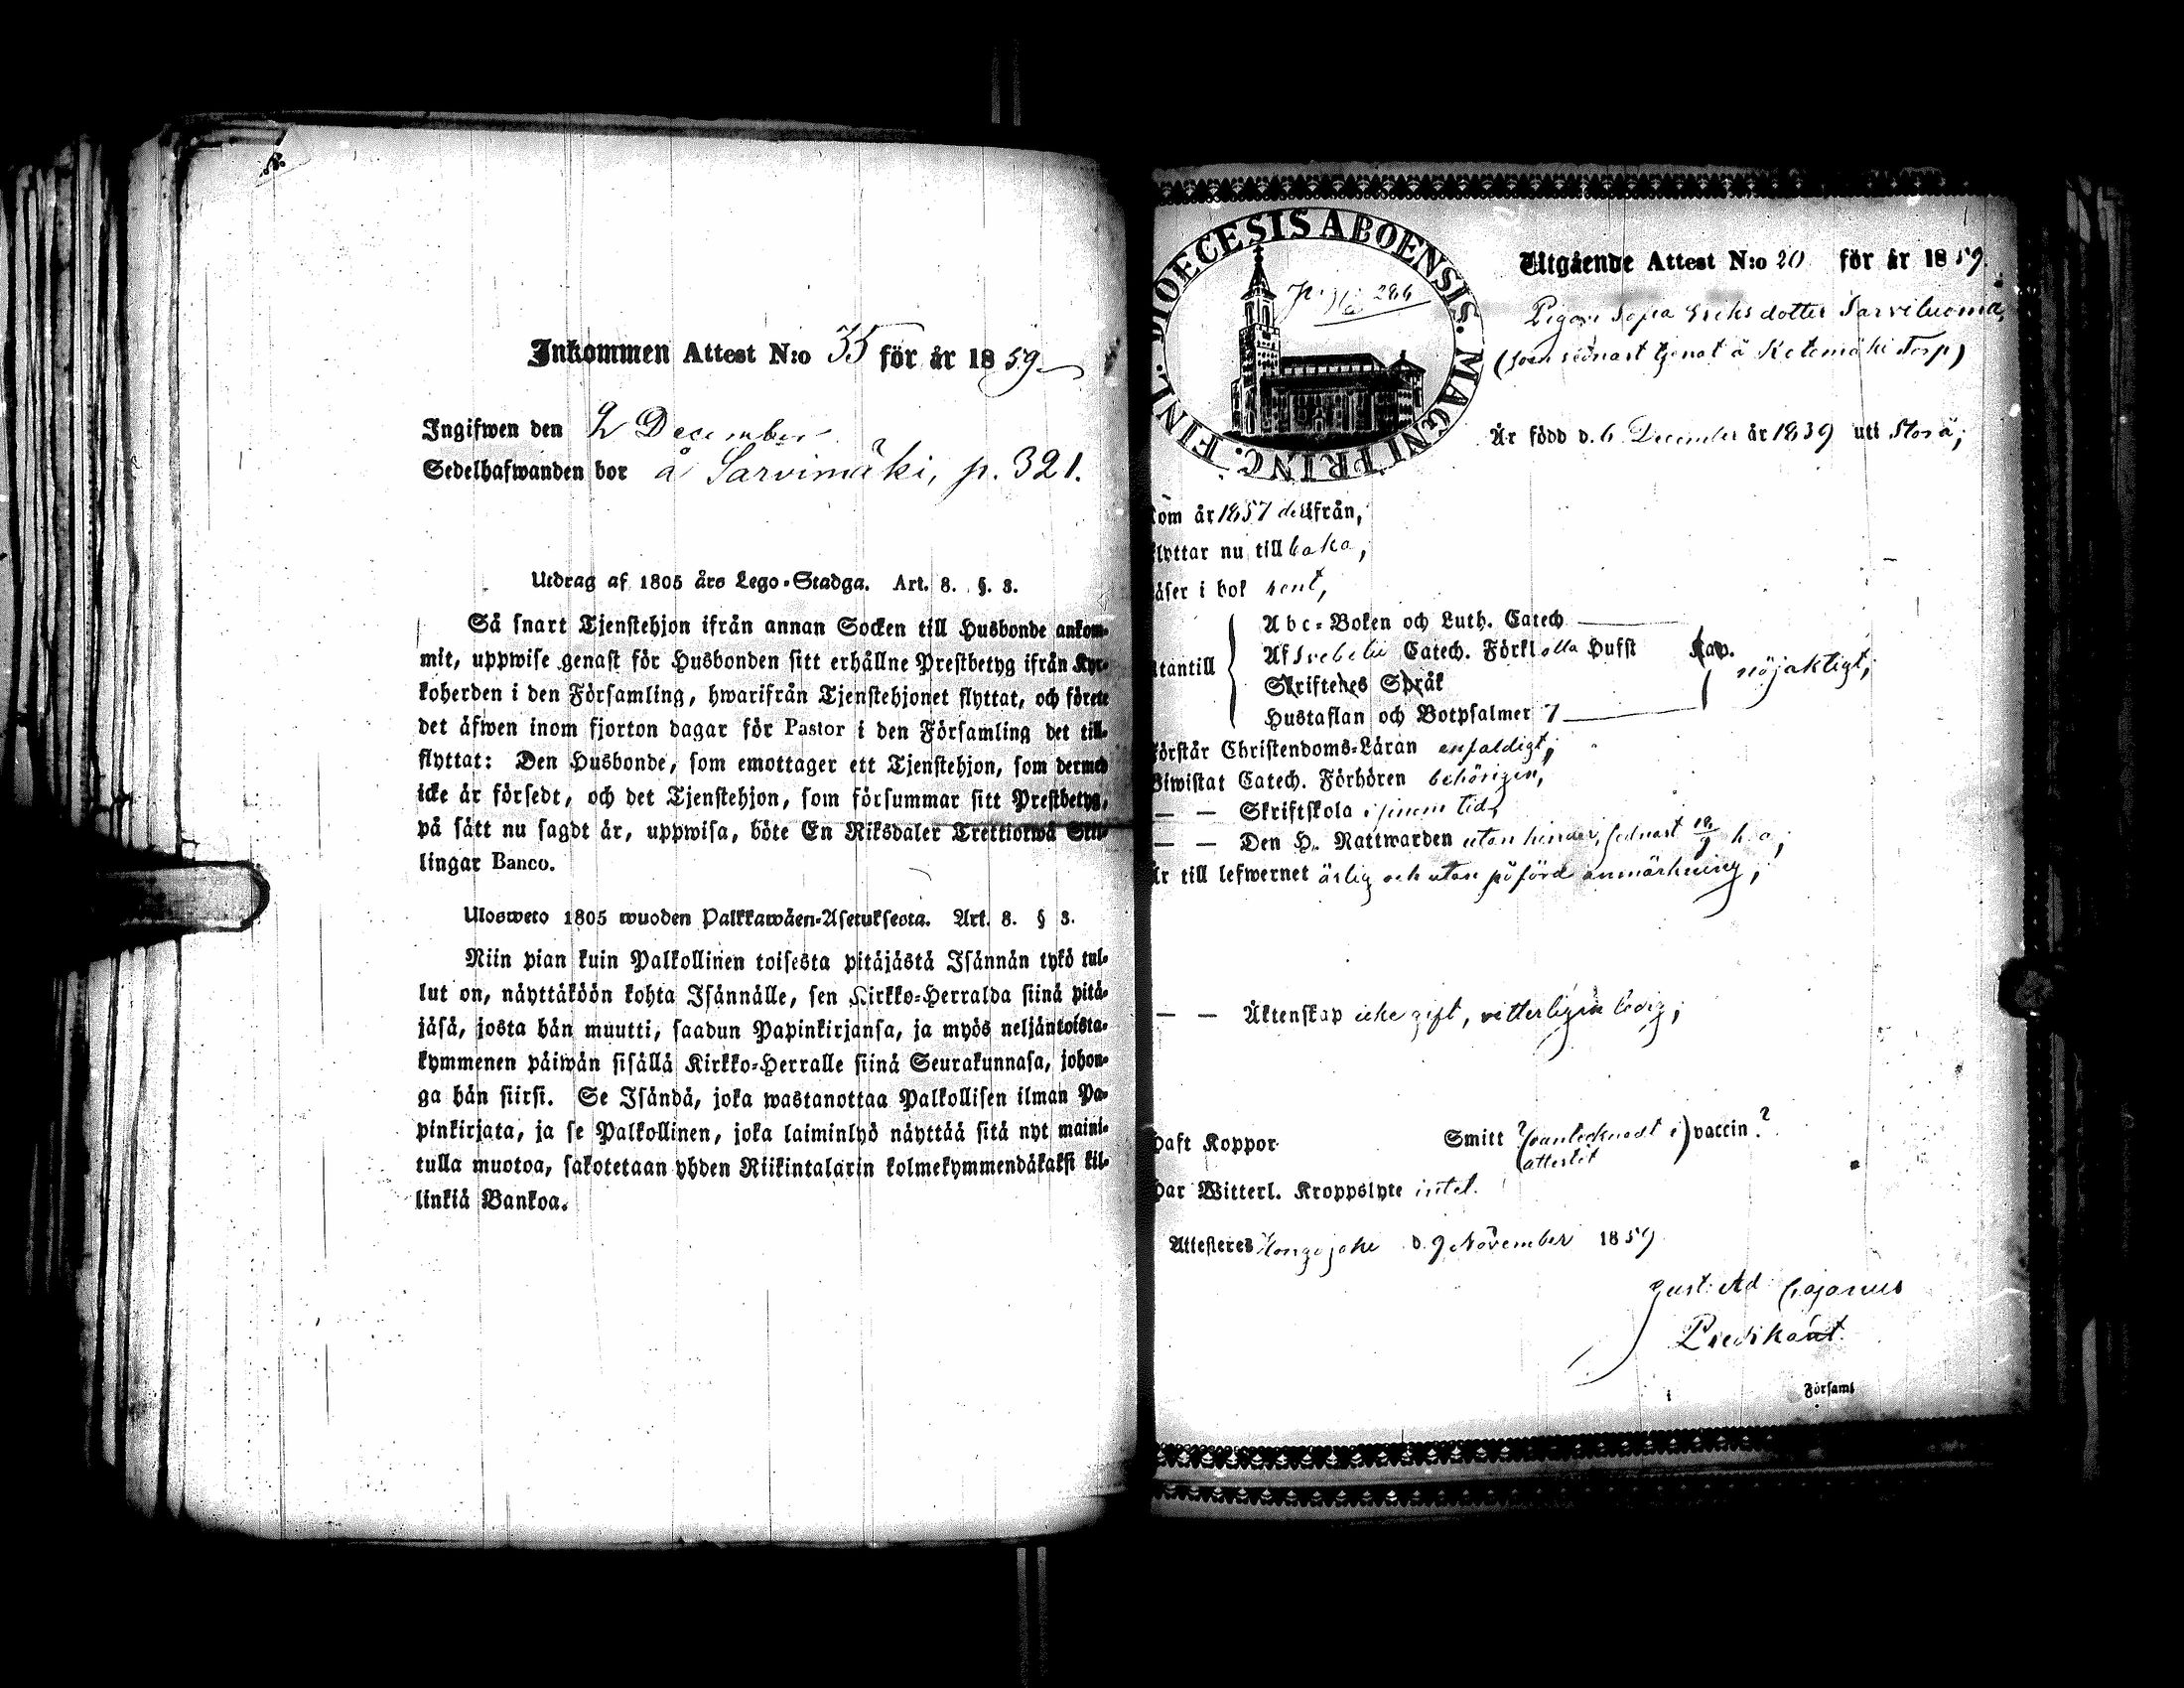 Inkommen Attest N:o 35 för år 1859
Ingifwen den 2 December
Sedelhafwanden bor å Sarvimäki, p. 321.
Utdrag af 1805 års Lego-Stadga. Art. 8. §. 3.
Så snart Tjenstehjon ifrån annan Socken till Husbonde ankom-
mit, uppwise genast för Husbonden sitt erhållne Prestbetyg ifrån Kyr-
koherden i den Församling, hwarifrån Tjenstehjonet flyttat, och förete
det äfwen inom fjorton dagar för Pastor i den Församling det till-
flyttat: Den Husbonde, som emottager ett Tjenstehjon, som dermed
icke är försedt, och det Tjenstehjon, som försummar sitt Prestbetyg,
på sätt nu sagdt är, uppwisa, böte En Riksdaler Trettiotwå Skil-
lingar Banco.
Ulosweto 1805 wuoden Palkkawäen-Asetuksesta. Art. 8. § 3.
Niin pian kuin Palkollinen toisesta pitäjästä Isännän tykö tul-
lut on, näyttäköön kohta Isännälle, sen Kirkko-Herralda siinä pitä-
jäsä, josta hän muutti, saadun Papinkirjansa, ja myös neljäntoista-
kymmenen päiwän sisällä Kirkko-Herralle siinä Seurakunnasa, johon-
ga hän siirsi. Se Isändä, joka wastanottaa Palkollisen ilman Pa-
pinkirjata, ja se Palkollinen, joka laiminlyö näyttää sitä nyt maini-
tulla muotoa, sakotetaan yhden Riikintalarin kolmekymmendäkaksi kil-
linkiä Bankoa.
DIOECESIS ABOENSIS. MAGNI PRINC. FINL.
286
Utgående Attest N:o 20 för år 1859.
Pigan Sofia Eriksdotter Sarviluoma,
(som sednast tjenat å Ketomäki Torp)
Är född d. 6 December år 1839 uti Storå;
kom år 1857 derifrån,
flyttar nu tillbaka,
läser i bok rent,
Utantill
Abc-Boken och Luth. Catech
Af Svebelii Catech. Förkl alla Hufst Kap. nöjaktigt,
Skriftenes Språk
Hustaflan och Botpsalmer 7
Förstår Christendoms-Läran enfaldigt;
Biwistat Catech. Förhören behörigen,
— — Skriftskola i sinom tid,
— — Den H. Nattwarden utan hinder, sednast 18/9 h. a;
Är till lefwernet ärlig och utan påförd anmärkning;
— — Äktenskap icke gift, vitterligen ledig;
Haft Koppor Smitt ? (oantecknadt i attestet) vaccin ?
Har Witterl. Kroppslyte intet.
Attesteres Hongojoki d. 9 November 1859
Gust. Ad. Cajanus
Predikant.
i Församl